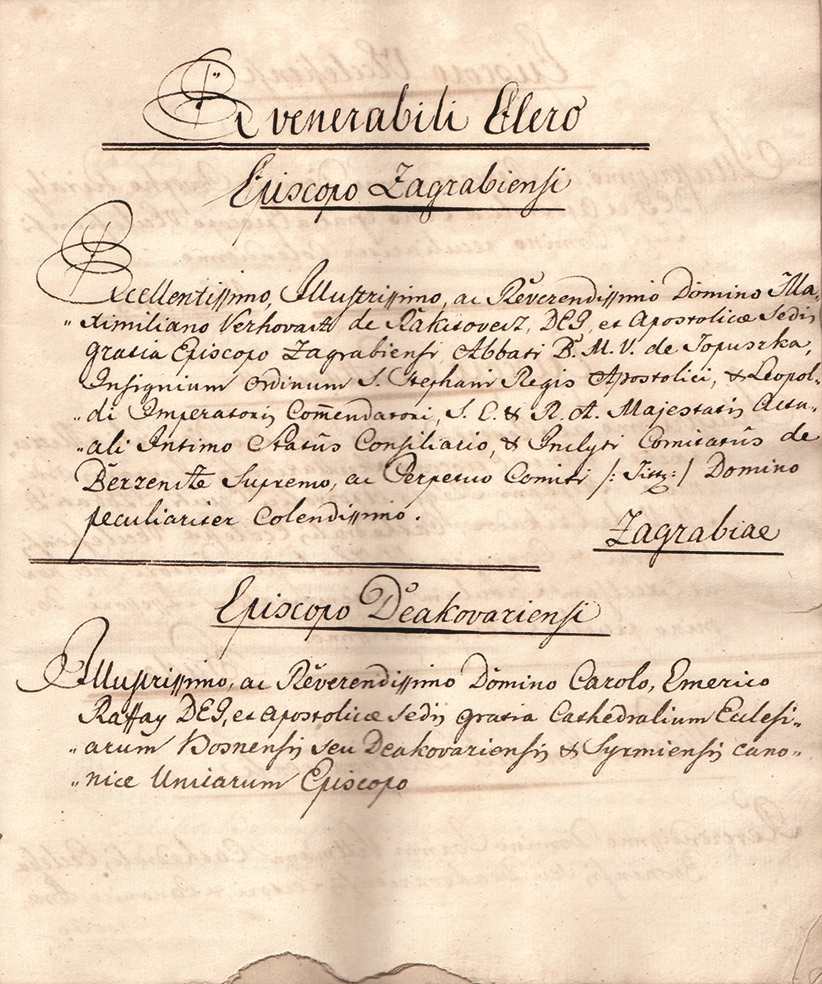 E venerabili Clero
Episcopo Zagrabiensi
Excellentissimo, Illustrissimo, ac Reverendissimo Domino Ma„
„ximiliano Verhovatz de Rakitovecz, DEI, et Apostolicæ Sedis
gratia Episcopo Zagrabiensi Abbati B. M. V. de Topuszka,
Insignium Ordinum S. Stephani Regis Apostolici, & Leopol„
„di Imperatoris Com̄endatori, S. C. & R. A. Majestatis Actu„
„ali Intimo Status Consiliario, & Inclyti Comitatûs de
Berzencze Supremo, ac Perpetuo Comiti /: Titt: / Domino
peculiariter Colendissimo.
Zagrabiae
Episcopo Deakovariensi
Illustrissimo, ac Reverendissimo Domino Carolo, Emerico
Raffay DEI, et Apostolicæ Sedis gratia Cathedralium Ecclesi„
„arum Bosnensis seu Deakovariensis & Syrmiensis cano„
„nice Unitarum Episcopo